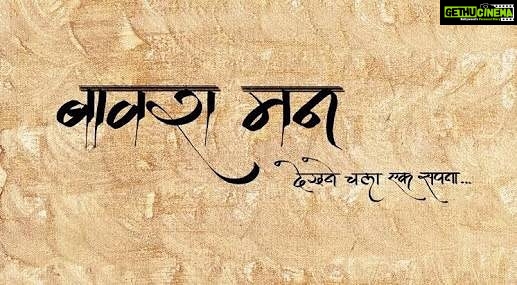 GETHU CINEMA
बावरा मन
देखने चला एक सपना...